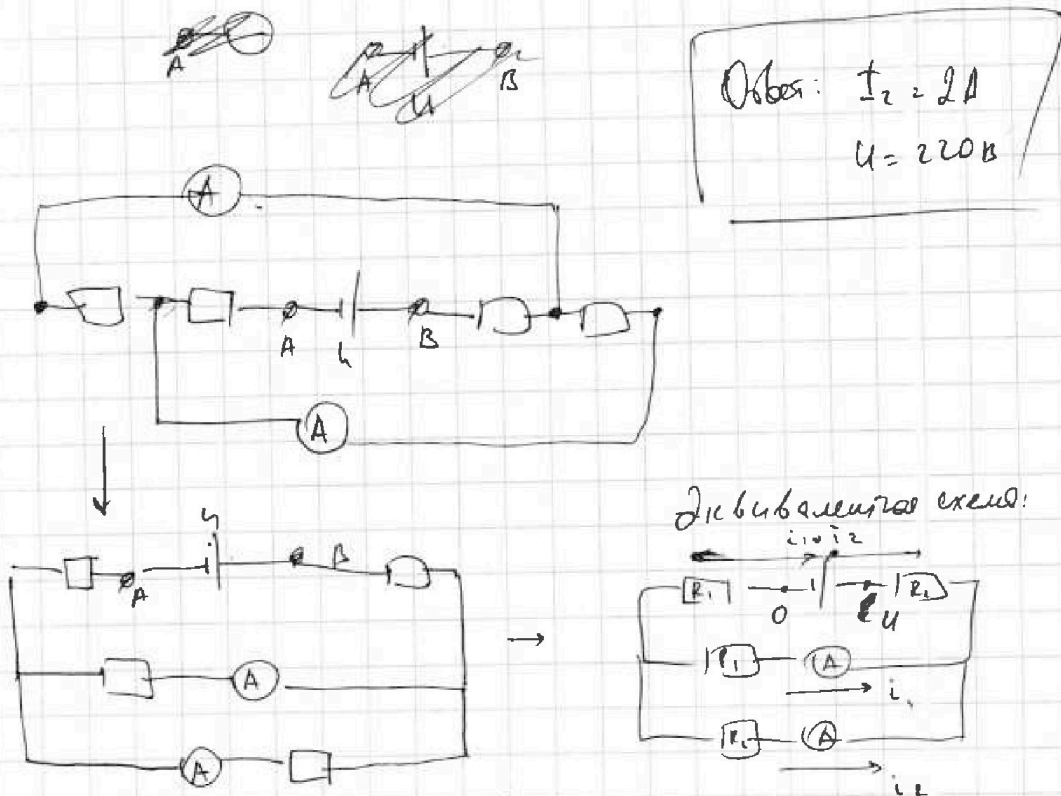 A
A U B
Ответ: I₂ = 2А
U = 220В
A
A U B
A
U
A B
A
A
Эквивалентная схема:
i₁+i₂
R₁ O U R₂
R₁ A
i₁
R₂ A
i₂